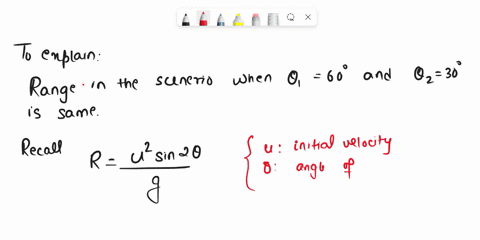 To explain:
Range in the scenerio when θ₁ = 60° and θ₂ = 30°
is same.
Recall R = u² sin 2θ / g
u: initial velocity
θ: angle of